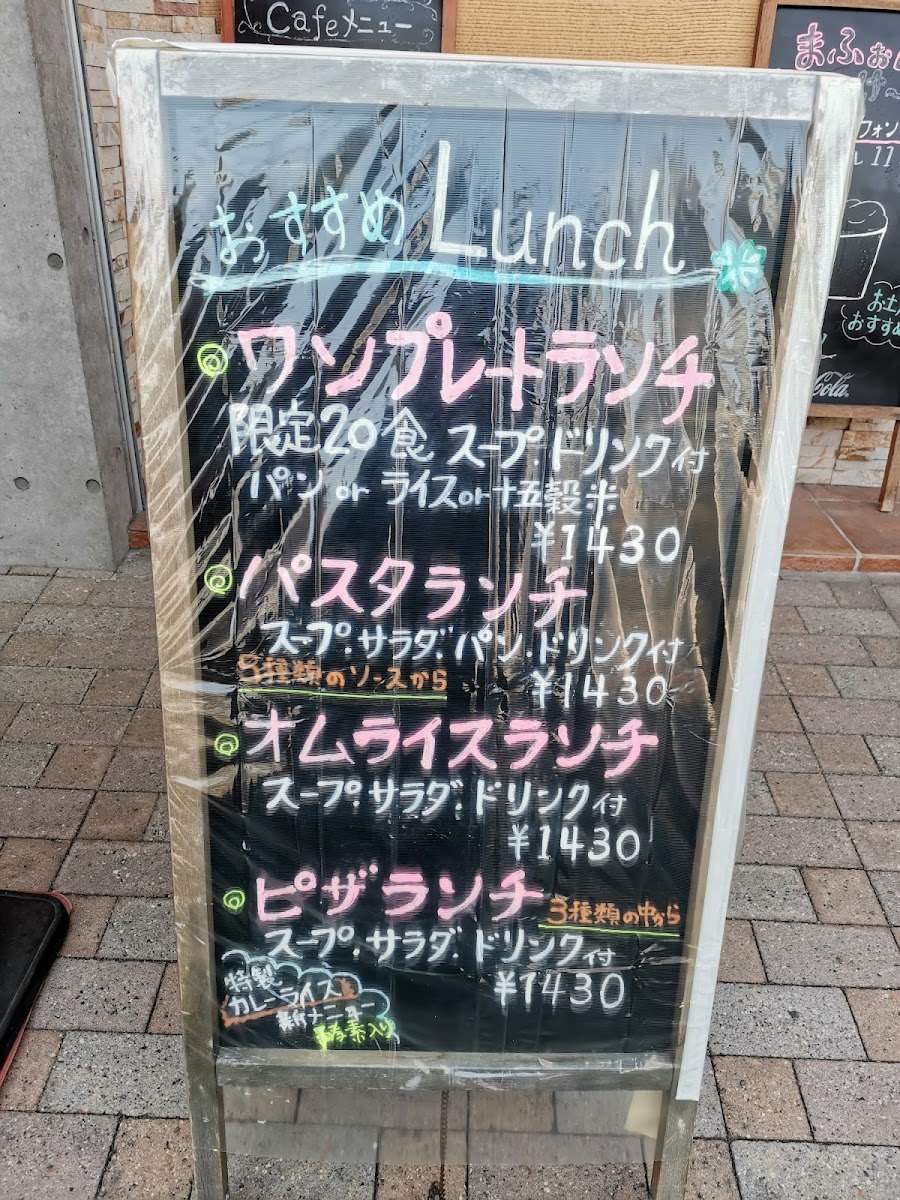 Cafeメニュー
まふぉ
フォン
11
お土
おすすめ
Cola
おすすめ Lunch
ワンプレートランチ
限定20食 スープ・ドリンク付
パン or ライス or 十五穀米
¥1430
パスタランチ
スープ・サラダ・パン・ドリンク付
3種類のソースから
¥1430
オムライスランチ
スープ・サラダ・ドリンク付
¥1430
ピザランチ 3種類の中から
スープ・サラダ・ドリンク付
¥1430
特製
カレーライス
新メニュー
酵素入り